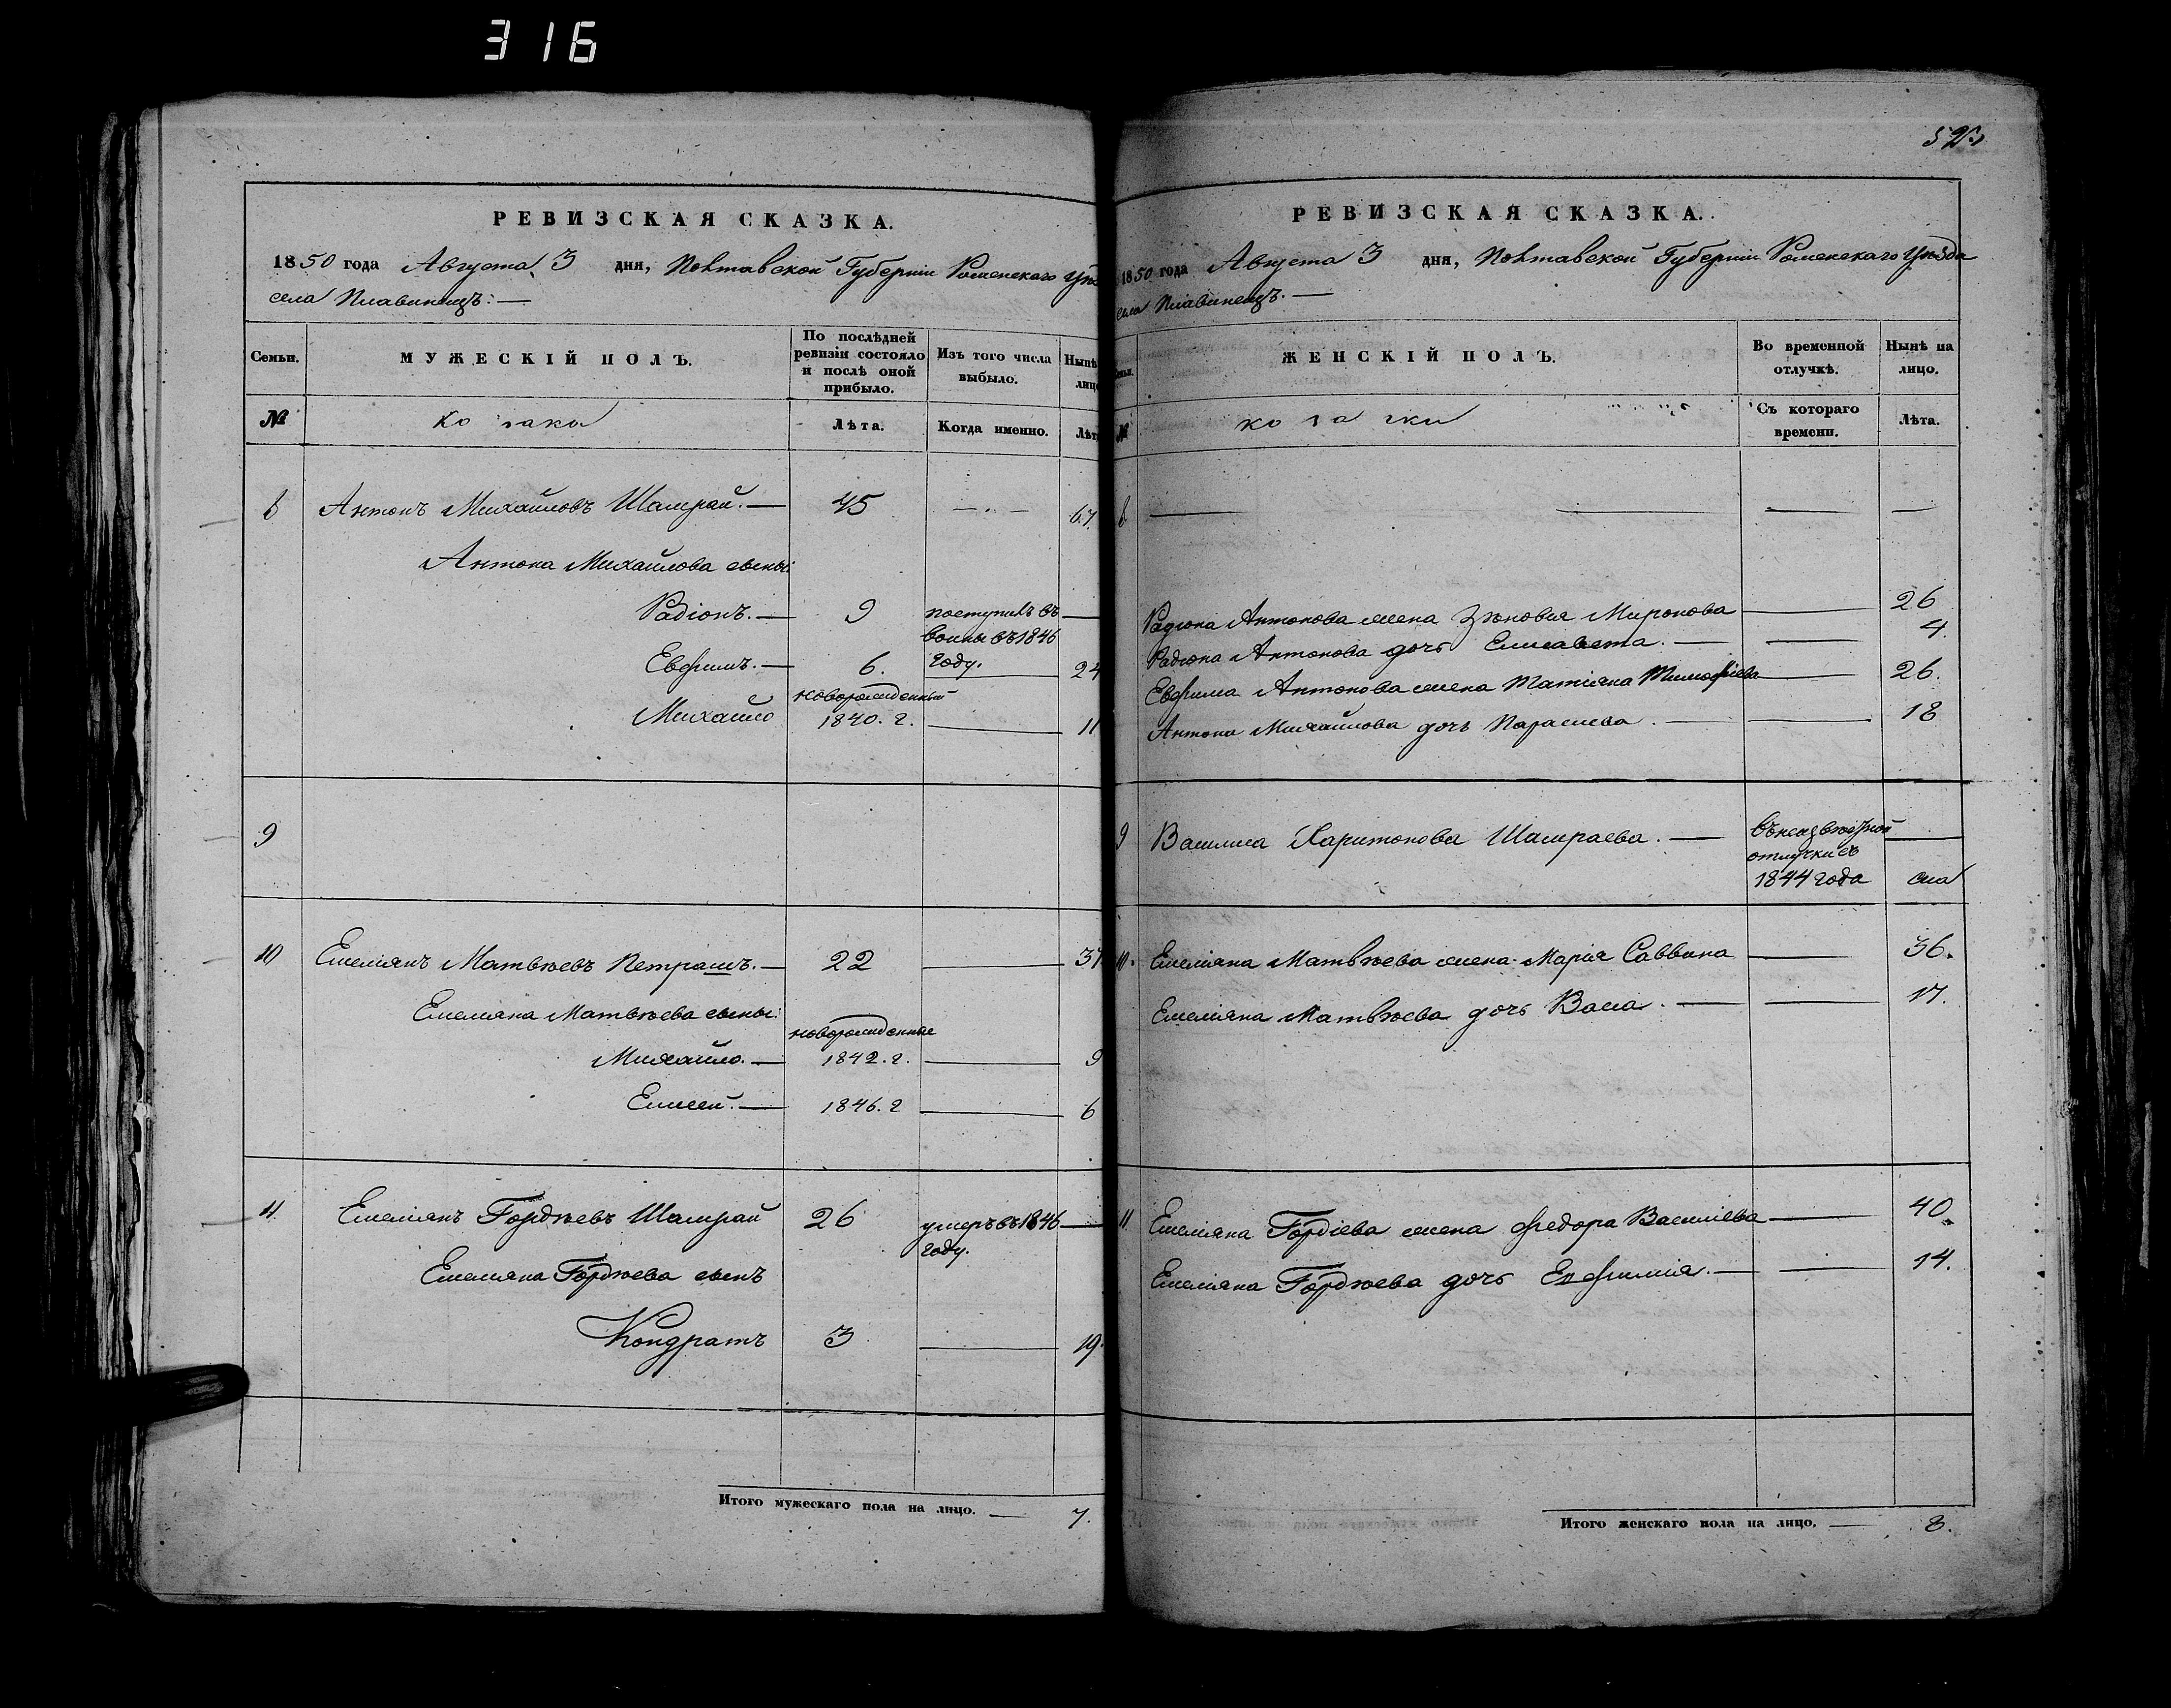 316
РЕВИЗСКАЯ СКАЗКА.
1850 года Августа 3 дня, Полтавской Губерніи Роменскаго Уѣ
села Плавинищъ:—
Семьи. МУЖЕСКІЙ ПОЛЪ. По послѣдней ревизіи состояло и послѣ оной прибыло. Изъ того числа выбыло. Нынѣ лицо
№ козаки Лѣта. Когда именно. Лѣт
8 Антонъ Михайловъ Шамрай.— 45 — 67.
Антона Михайлова сыны:
Радіонъ.— 9 поступилъ въ —
воины въ 1846
Евфимъ.— 6. году. 24
новорожденный
Михайло 1840. г. — 11
9
10 Емеліянъ Матвѣевъ Петрашъ.— 22 — 37
Емеліяна Матвѣева сыны:
новорожденные
Михайло.— 1842. г. — 9
Елисей.— 1846. г — 6
11. Емеліянъ Гордѣевъ Шамрай 26 умеръ въ 1846 —
году.
Емеліяна Гордѣева сынъ
Кондратъ 3 — 19.
Итого мужескаго пола на лицо. — 7.
523
РЕВИЗСКАЯ СКАЗКА.
1850 года Августа 3 дня, Полтавской Губерніи Роменскаго Уѣзда
села Плавинищъ.—
ЖЕНСКІЙ ПОЛЪ. Во временной отлучкѣ. Нынѣ на лицо.
№ козачки Съ котораго времени. Лѣта.
8. — — — —
Радіона Антонова жена Зѣновія Миронова — 26
Радіона Антонова дочь Елисавета.— — 4.
Евфима Антонова жена Татіяна Тимофіева — 26.
Антона Михайлова дочь Параскева.— — 18
9 Василиса Харитонова Шамраева.— въ неизвѣстной —
отлучки съ
1844 года
10. Емеліяна Матвѣева жена Марія Саввина — 36.
Емеліяна Матвѣева дочь Васса.— — 17.
11. Емеліяна Гордіева жена Федора Василіева — 40.
Емеліяна Гордѣева дочь Евфимія.— — 14.
Итого женскаго пола на лицо. — 8.